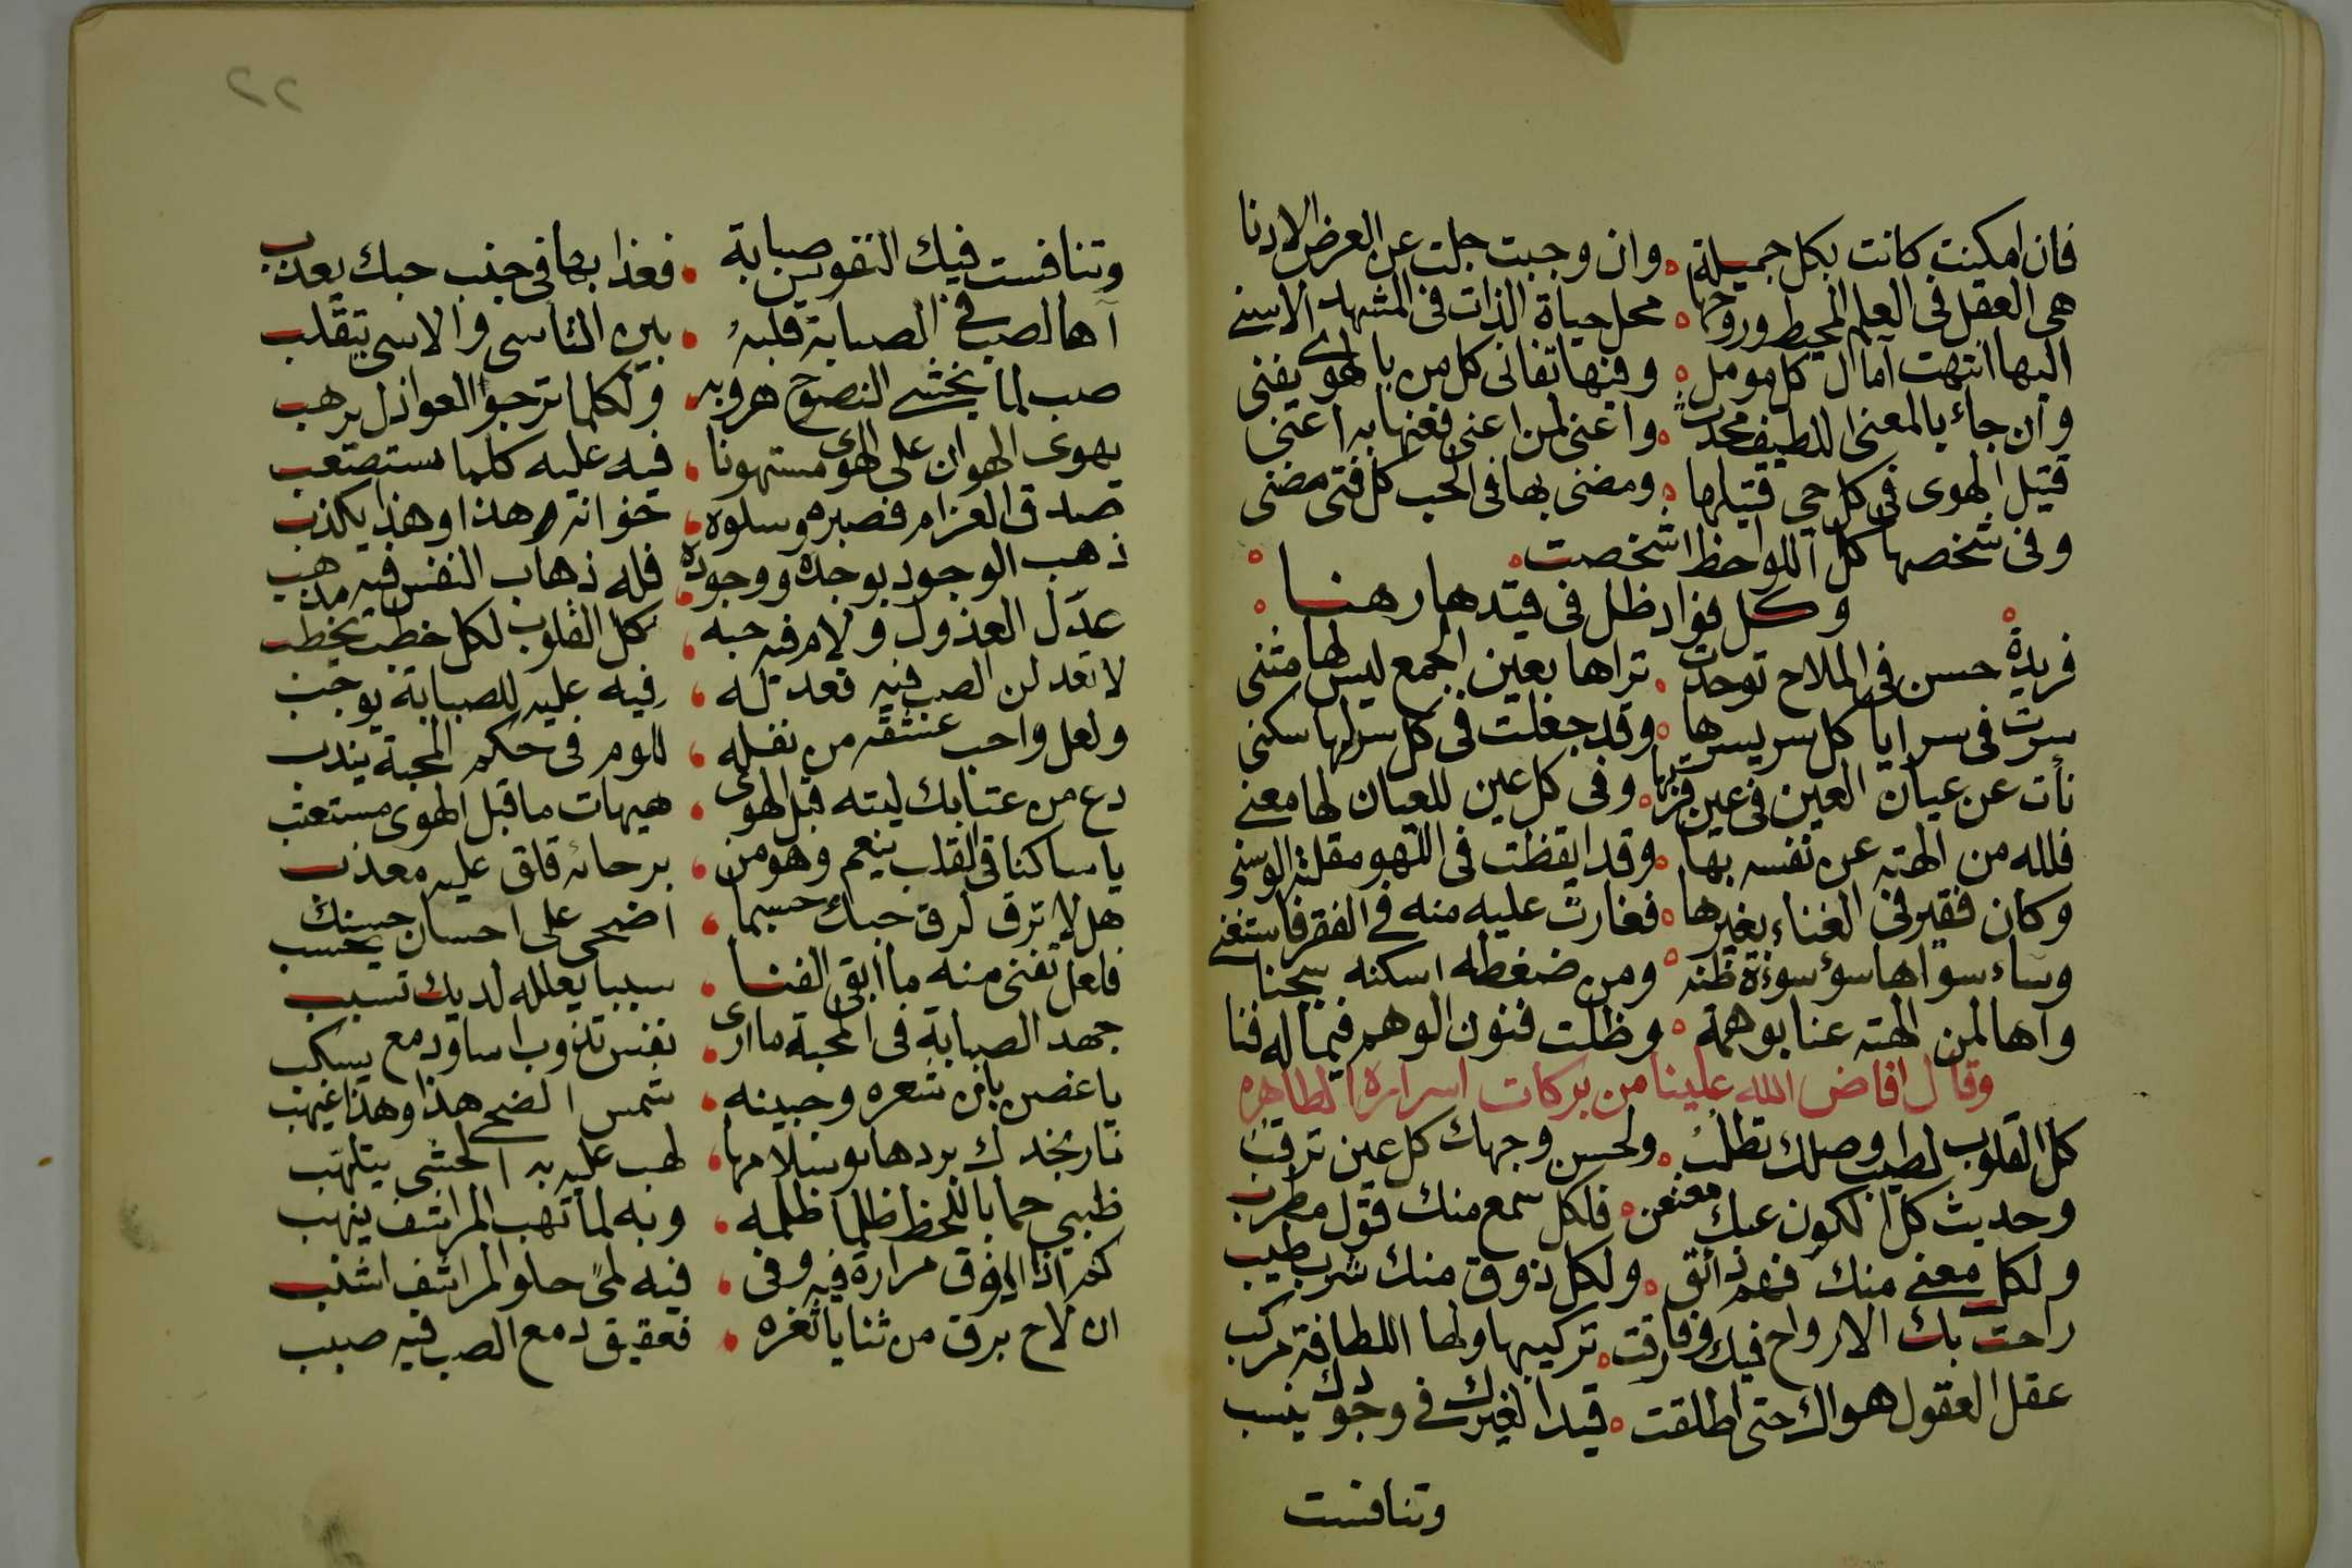 فان امكنت كانت بكل جميلة وان وجبت جلت عن العرض الادنا
هى العقل فى العلم المحيط وروحها محل حياة الذات فى المشهد الاسنى
اليها انتهت آمال كل مومل وفيها تفانى كل من بالهوى يفنى
وان جاء بالمعنى اللطيف محدث واغنى لمن اعنى فعنها به اعتنى
قتيل الهوى فى كل حي قتيلها ومضنى بها فى الحب كل فتى مضنى
وفى شخصها كل اللواحظ اشخصت
وكل فواد ظل فى قيدها رهنا
فريدة حسن فى الملاح توحدت تراها بعين الجمع ليس لها مثنى
سرت فى سرايا كل سر بسرها وقد جعلت فى كل سر لها سكنى
نأت عن عيان العين فى عين قربها وفى كل عين للعيان لها معنى
فلله من الهته عن نفسه بها وقد ايقظت فى اللهو مقلته الوسنى
وكان فقير فى الغناء بغيرها فغارت عليه منه فى الفقر فاستغنى
وساء سواها سؤ سوءة ظنه ومن ضغطه اسكنه سجنا
وآها لمن الهته عنا بوهمه وظلت فنون الوهم فيما له فنا
وقال افاض الله علينا من بركات اسراره الطاهره
كل القلوب لطيب وصلك تطلب ولحسن وجهك كل عين ترقب
وحديث كل الكون عنك معنعن فلكل سمع منك قول مطرب
ولكل معنى منك فهم ذائق ولكل ذوق منك شرب طيب
راحت بك الارواح فيك وفارقت تركيبها ولها اللطافة مركب
عقل العقول هواك حتى اطلقت قيدا لغيرك فى وجودك ينسب
وتنافست
٢٢
وتنافست فيك النفوس صبابة فعذابها فى جنب حبك يعذب
آها لصب فى الصبابة قلبه بين التأسى والاسى يتقلب
صب لما يخشى النصوح هروبه ولكلما ترجوا العواذل يرهب
يهوى الهوان على الهوى مستهونا فيه عليه كلما مستصعب
صدق الغرام فصبره وسلوه هذا وهذا يكذب
ذهب الوجود بوجده ووجوده فله ذهاب النفس فيه مذهب
عدل العذول ولام فيه حبه كل القلوب لكل خطب تخطب
لا تعدلن الصب فيه فعدله فيه عليه للصبابة يوجب
ولعل واجب عشقه من نفله للوم فى حكم المحبة يندب
دع من عتابك ليته قبل الهوى هيهات ما قبل الهوى مستعتب
يا ساكنا فى القلب ينعم وهو من برحائه قلق عليه معذب
هل لا ترق لرق حبك حسبما اضحى على احسان حسنك يحسب
فلعل تفنى منه ما ابقى الفنا سببا يعلله لديك تسبب
جهد الصبابة فى المحبة ما ارى نفس تذوب اسا ودمع يسكب
يا غصن بان شعره وجبينه شمس الضحى هذا وهذا غيهب
نار بخدك بردها وسلامها لهب عليه به الحشى يتلهب
ظبيي حما باللحظ ظلما ظلمه وبه لما تهب المراشف ينهب
كم اذا مرارة فيه وفى فيه لمى حلو المراشف اشنب
ان لاح برق من ثنايا ثغره فعقيق دمع الصب فيه صبب